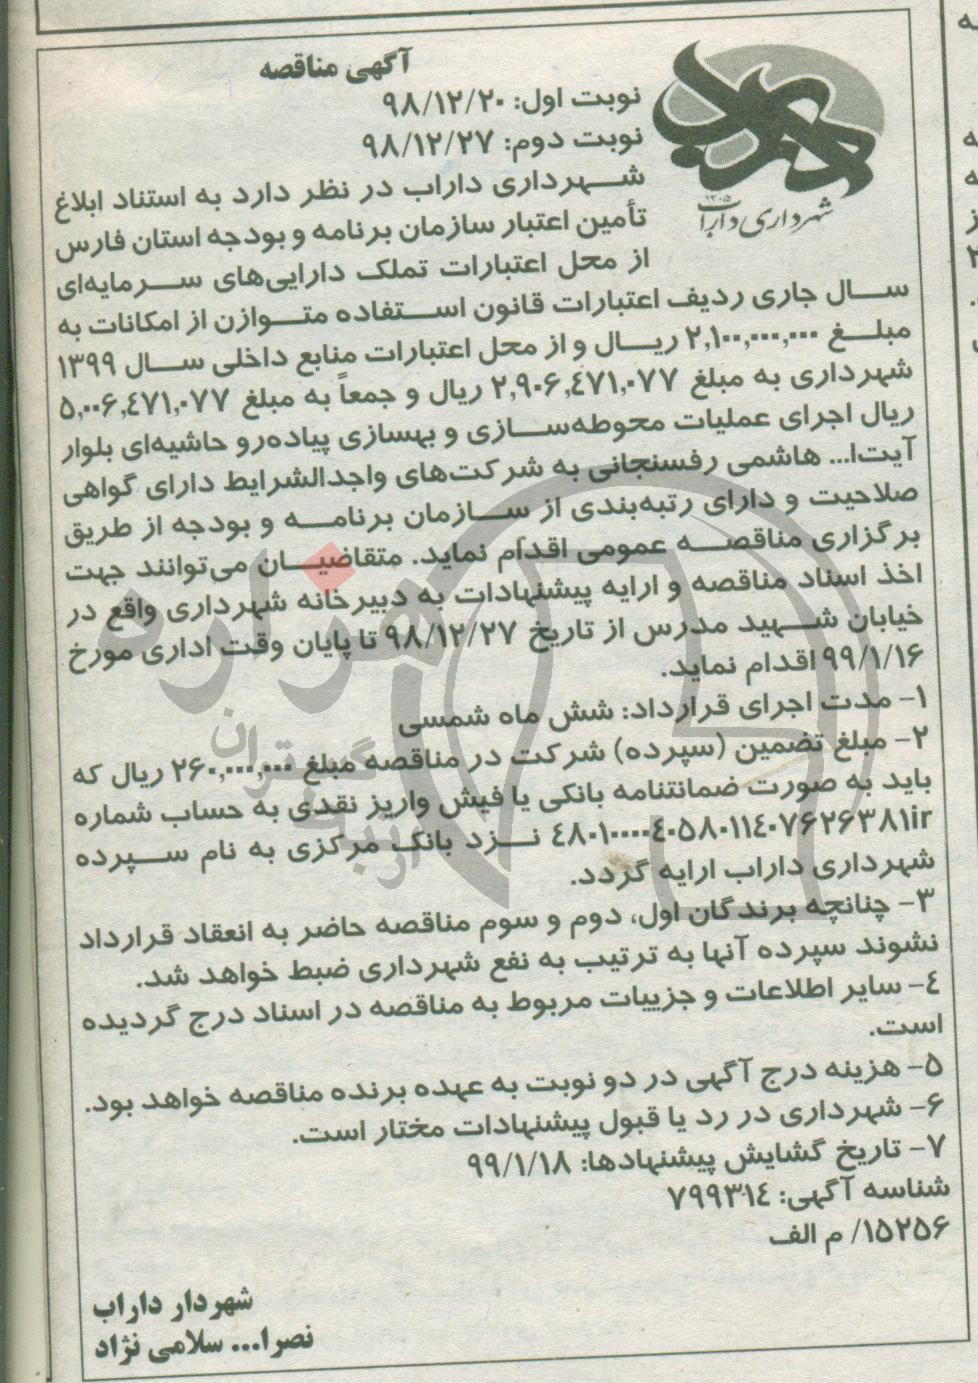 آگهی مناقصه
نوبت اول: ۹۸/۱۲/۲۰
نوبت دوم: ۹۸/۱۲/۲۷
شهرداری داراب در نظر دارد به استناد ابلاغ
تأمین اعتبار سازمان برنامه و بودجه استان فارس
از محل اعتبارات تملک دارایی‌های سرمایه‌ای
سال جاری ردیف اعتبارات قانون استفاده متوازن از امکانات به
مبلغ ۲,۱۰۰,۰۰۰,۰۰۰ ریال و از محل اعتبارات منابع داخلی سال ۱۳۹۹
شهرداری به مبلغ ۲,۹۰۶,۴۷۱,۰۷۷ ریال و جمعاً به مبلغ ۵,۰۰۶,۴۷۱,۰۷۷
ریال اجرای عملیات محوطه‌سازی و بهسازی پیاده‌رو حاشیه‌ای بلوار
آیت‌ا... هاشمی رفسنجانی به شرکت‌های واجدالشرایط دارای گواهی
صلاحیت و دارای رتبه‌بندی از سازمان برنامه و بودجه از طریق
برگزاری مناقصه عمومی اقدام نماید. متقاضیان می‌توانند جهت
اخذ اسناد مناقصه و ارایه پیشنهادات به دبیرخانه شهرداری واقع در
خیابان شهید مدرس از تاریخ ۹۸/۱۲/۲۷ تا پایان وقت اداری مورخ
۹۹/۱/۱۶ اقدام نماید.
۱- مدت اجرای قرارداد: شش ماه شمسی
۲- مبلغ تضمین (سپرده) شرکت در مناقصه مبلغ ۲۶۰,۰۰۰,۰۰۰ ریال که
باید به صورت ضمانتنامه بانکی یا فیش واریز نقدی به حساب شماره
۴۸۰۱۰۰۰۰۴۰۵۸۰۱۱۴۰۷۶۲۶۳۸۱ir نزد بانک مرکزی به نام سپرده
شهرداری داراب ارایه گردد.
۳- چنانچه برندگان اول، دوم و سوم مناقصه حاضر به انعقاد قرارداد
نشوند سپرده آنها به ترتیب به نفع شهرداری ضبط خواهد شد.
۴- سایر اطلاعات و جزییات مربوط به مناقصه در اسناد درج گردیده
است.
۵- هزینه درج آگهی در دو نوبت به عهده برنده مناقصه خواهد بود.
۶- شهرداری در رد یا قبول پیشنهادات مختار است.
۷- تاریخ گشایش پیشنهادها: ۹۹/۱/۱۸
شناسه آگهی: ۷۹۹۳۱۴
۱۵۲۵۶/ م الف
شهردار داراب
نصرا... سلامی نژاد
شهرداری داراب
۱۳۰۵
هزاره